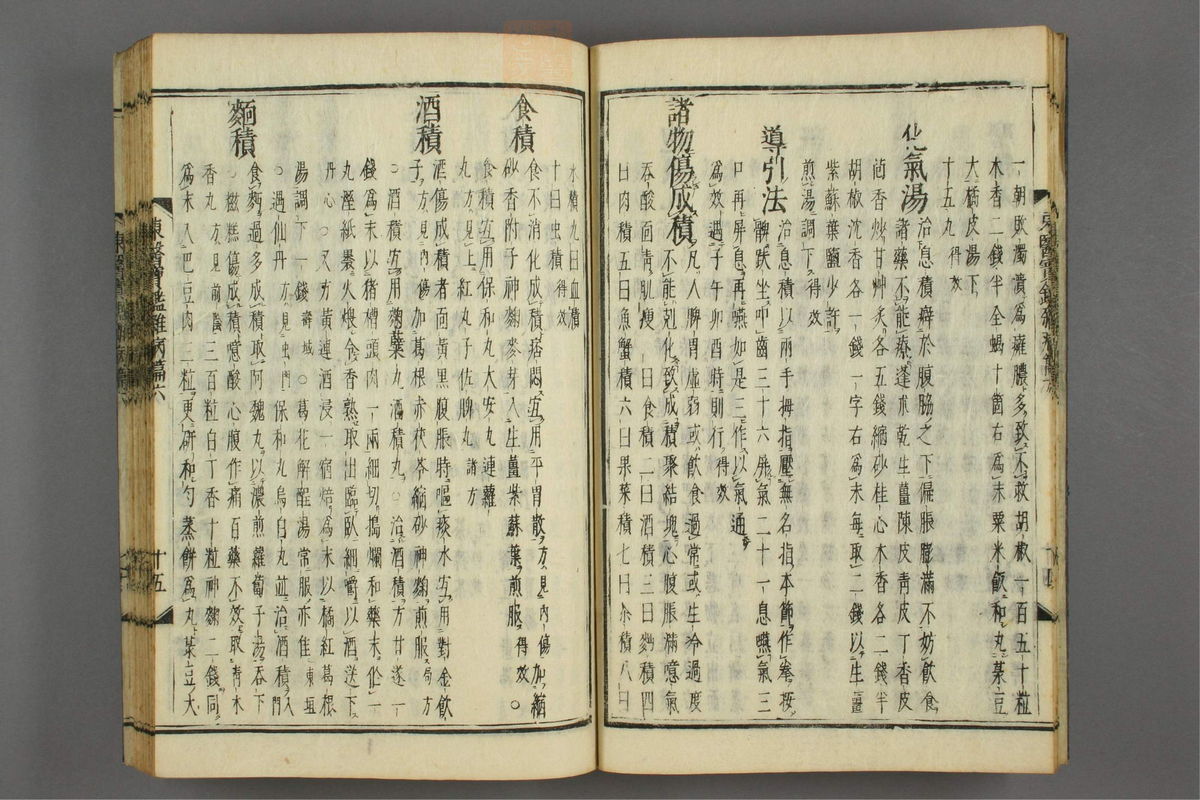 一朝敗濁潰爲癰膿多致不救胡椒一百五十粒
木香二錢半全蝎十箇右爲末粟米飯和丸菉豆
大橘皮湯下
十五丸得效
化氣湯
治息積癖於腹脇之下偏脹膨滿不妨飲食
諸藥不能療蓬朮乾生薑陳皮靑皮丁香皮
茴香炒甘艸炙各五錢縮砂桂心木香各二錢半
胡椒沈香各一錢一字右爲末每取二錢以生薑
紫蘇葉鹽少許
煎湯調下得效
導引法
治息積以兩手拇指壓無名指本節作拳按
髀趺坐叩齒三十六屏氣二十一息嚥氣三
口再屏息再嚥如是三作以氣通
爲效遇子午卯酉時則行得效
諸物傷成積
凡人脾胃虛弱或飮食過常或生冷過度
不能剋化致成積聚結塊心腹脹滿噫氣
吞酸面靑肌瘦一曰食積二曰酒積三曰麪積四
曰肉積五曰魚蟹積六曰果菜積七曰茶積八曰
水積九曰血積
十曰虫積
食積
食不消化成積痞悶宜用平胃散方見內傷加縮
砂香附子神麴麥芽入生薑紫蘇葉煎服得效○
食積宜用保和丸大安丸連蘿
丸方見上紅丸子佐脾丸諸方
酒積
酒傷成積者面黃黑腹脹時嘔痰水宜用對金飮
子方見內傷加葛根赤茯苓縮砂神麴煎服局方
○酒積宜用麴蘗丸酒積丸○治酒積方甘遂一
錢爲末以猪槽頭肉一兩細切搗爛和藥末作一
丸溼紙裹火煨令香熟取出臨臥細嚼以酒送下
丹心○又方黃連酒浸一宿焙爲末以橘紅葛根
湯調下一錢壽域○葛花解酲湯常服亦佳東垣
○遇仙丹方見虫門保和丸烏白丸並治酒積入門
麪積
食麪過多成積取阿魏丸以濃煎蘿葍子湯呑下
○糍糕傷成積噫酸心腹作痛百藥不效取靑木
香丸方見前三百粒白丁香十粒神麴二錢同
爲末入巴豆肉二粒更硏和勻蒸餠爲丸菉豆大
東醫寶鑑雜病篇六
十五